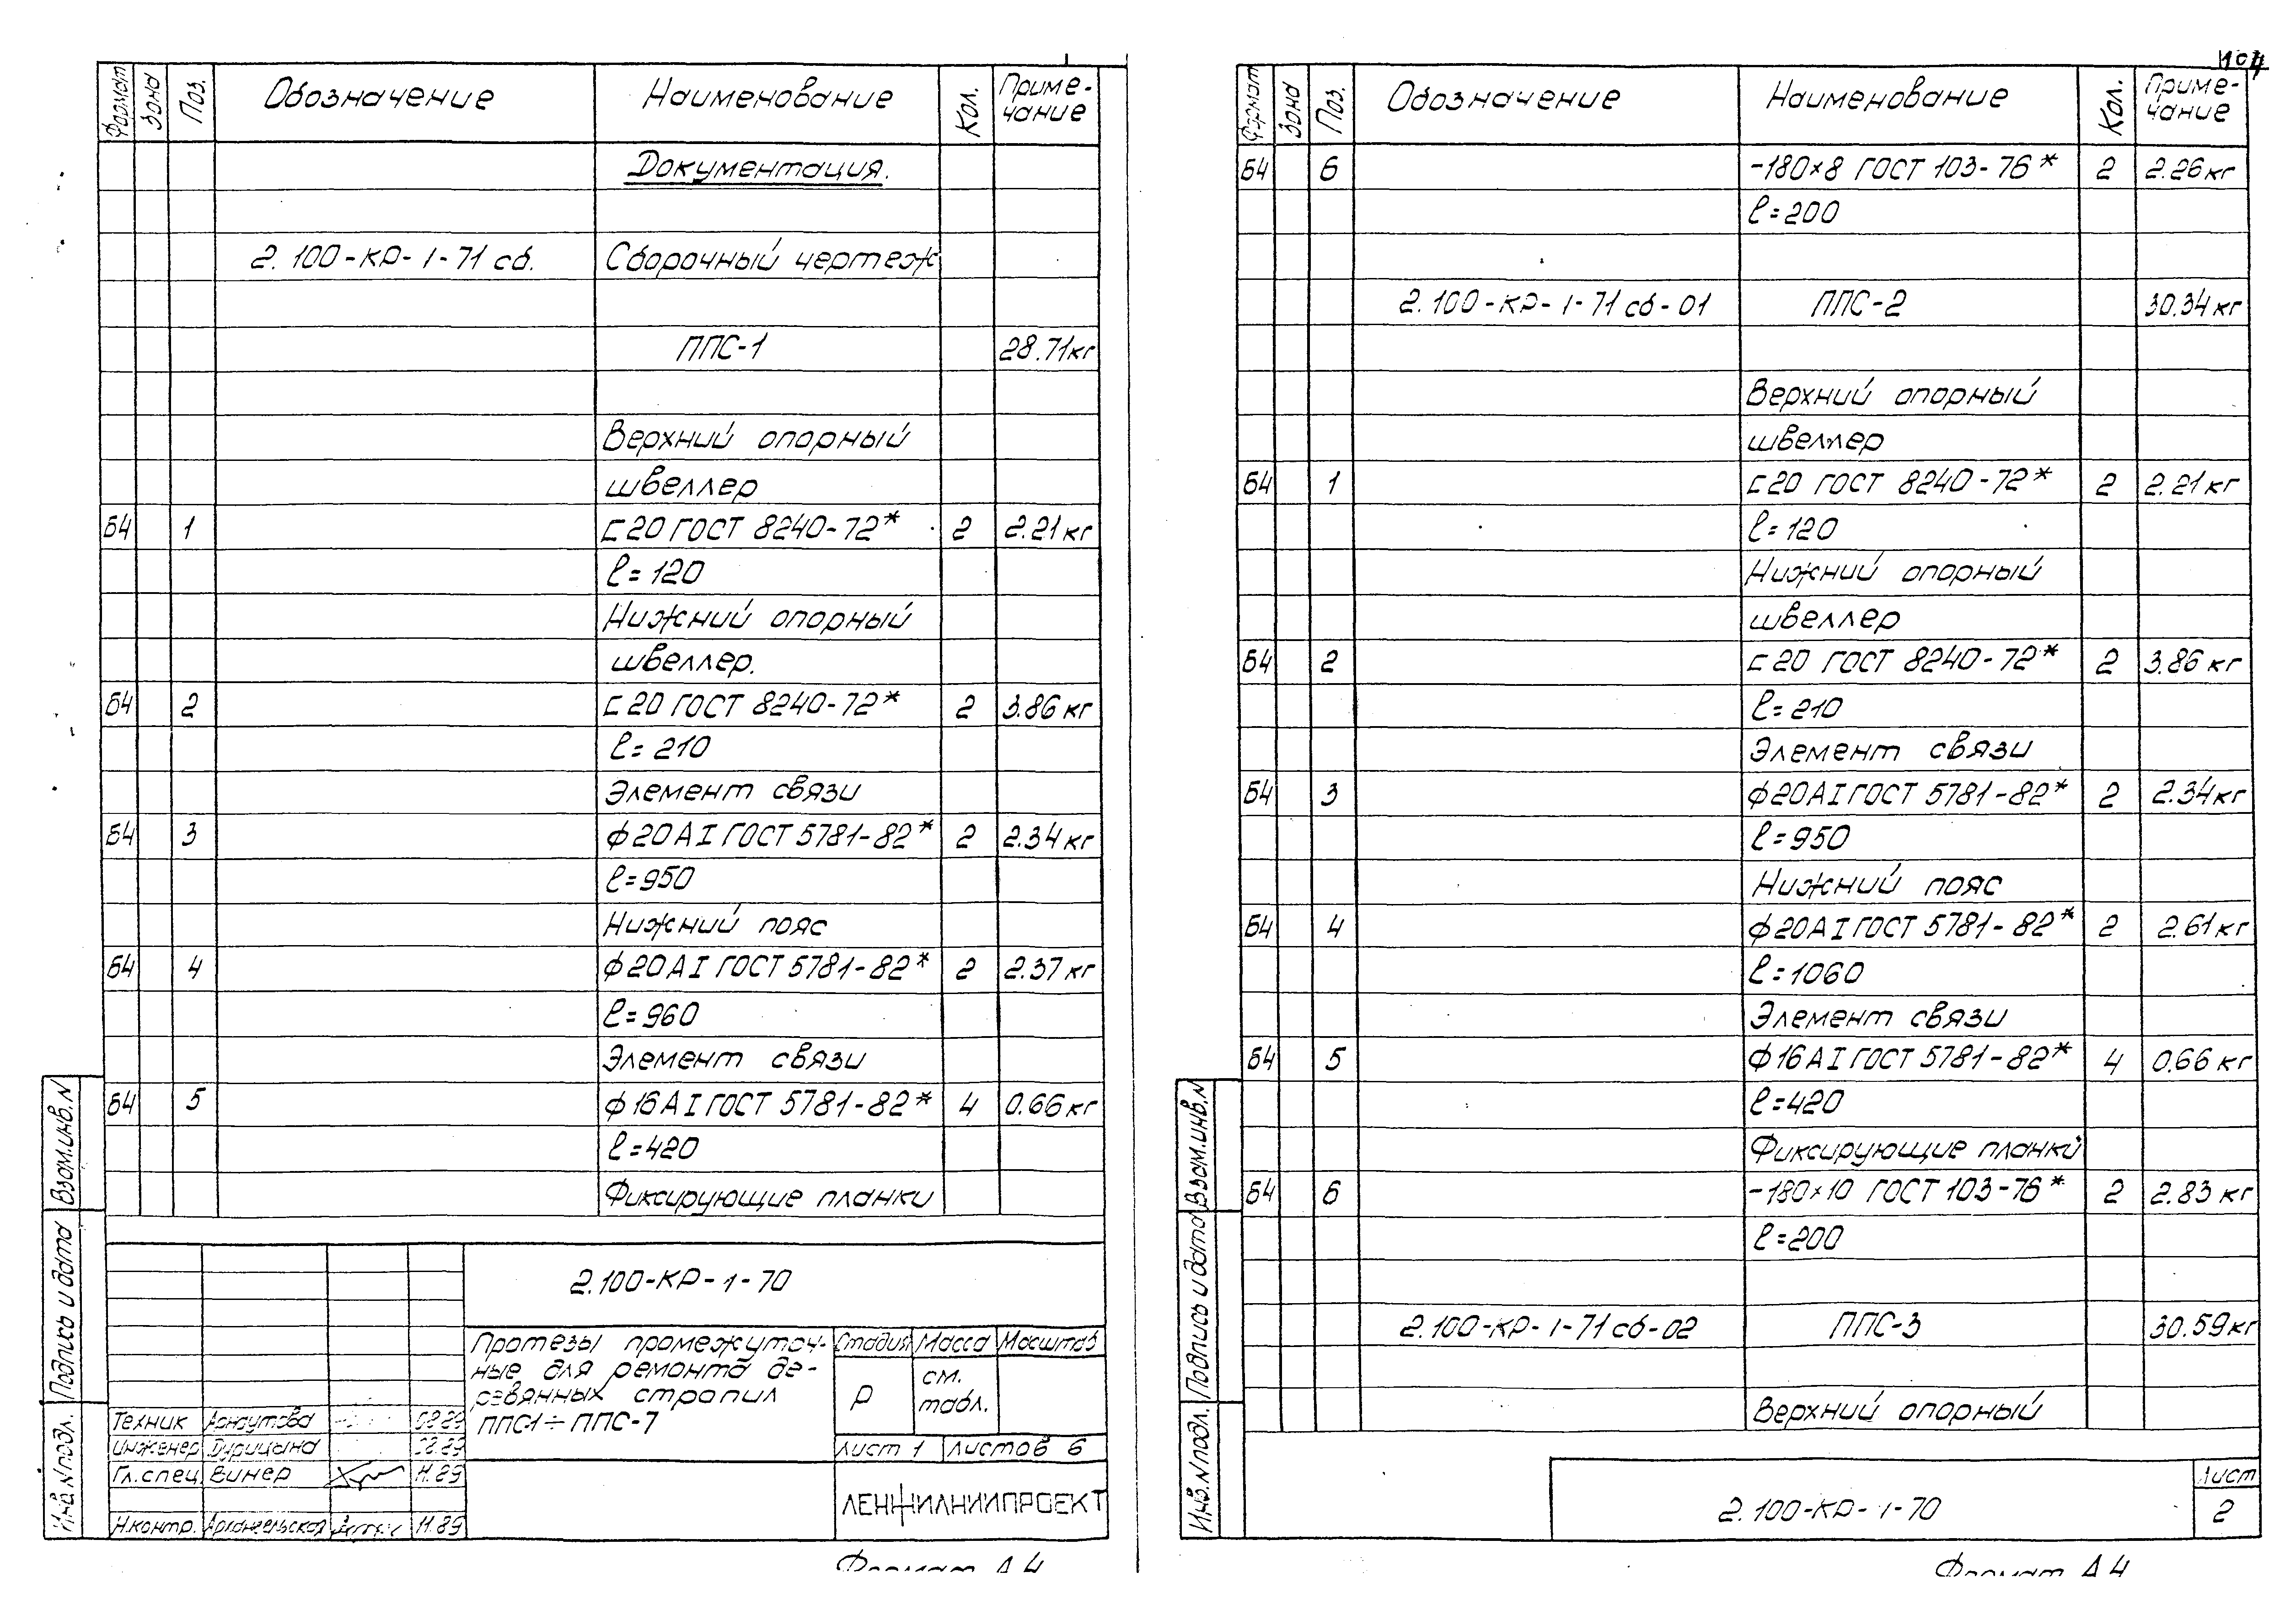 Формат Зона Поз. Обозначение Наименование Кол. Приме-
чание
Документация.
2.100-КР-1-71 сб. Сборочный чертеж
ППС-1 28.71кг
Верхний опорный
швеллер
Б4 1 ⊏20 ГОСТ 8240-72* 2 2.21кг
ℓ=120
Нижний опорный
швеллер.
Б4 2 ⊏20 ГОСТ 8240-72* 2 3.86кг
ℓ=210
Элемент связи
Б4 3 ϕ20АI ГОСТ 5781-82* 2 2.34кг
ℓ=950
Нижний пояс
Б4 4 ϕ20АI ГОСТ 5781-82* 2 2.37кг
ℓ=960
Элемент связи
Б4 5 ϕ16АI ГОСТ 5781-82* 4 0.66кг
ℓ=420
Фиксирующие планки
Взам.инв.N
Подпись и дата
Инв.N подл.
2.100-КР-1-70
Протезы промежуточ-
ные для ремонта де-
ревянных стропил
ППС1÷ППС-7
Стадия Масса Масштаб
Р см.
табл.
Лист 1 Листов 6
ЛЕНЖИЛНИИПРОЕКТ
Техник Арнаутова 08.89
Инженер 08.89
Гл.спец. Винер 11.89
Н.контр. Архангельская 11.89
Формат А4
104
Формат Зона Поз. Обозначение Наименование Кол. Приме-
чание
Б4 6 -180×8 ГОСТ 103-76* 2 2.26кг
ℓ=200
2.100-КР-1-71 сб-01 ППС-2 30.34кг
Верхний опорный
швеллер
Б4 1 ⊏20 ГОСТ 8240-72* 2 2.21кг
ℓ=120
Нижний опорный
швеллер
Б4 2 ⊏20 ГОСТ 8240-72* 2 3.86кг
ℓ=210
Элемент связи
Б4 3 ϕ20АI ГОСТ 5781-82* 2 2.34кг
ℓ=950
Нижний пояс
Б4 4 ϕ20АI ГОСТ 5781-82* 2 2.61кг
ℓ=1060
Элемент связи
Б4 5 ϕ16АI ГОСТ 5781-82* 4 0.66кг
ℓ=420
Фиксирующие планки
Б4 6 -180×10 ГОСТ 103-76* 2 2.83кг
ℓ=200
2.100-КР-1-71 сб-02 ППС-3 30.59кг
Верхний опорный
Взам.инв.N
Подпись и дата
Инв.N подл.
2.100-КР-1-70
Лист
2
Формат А4